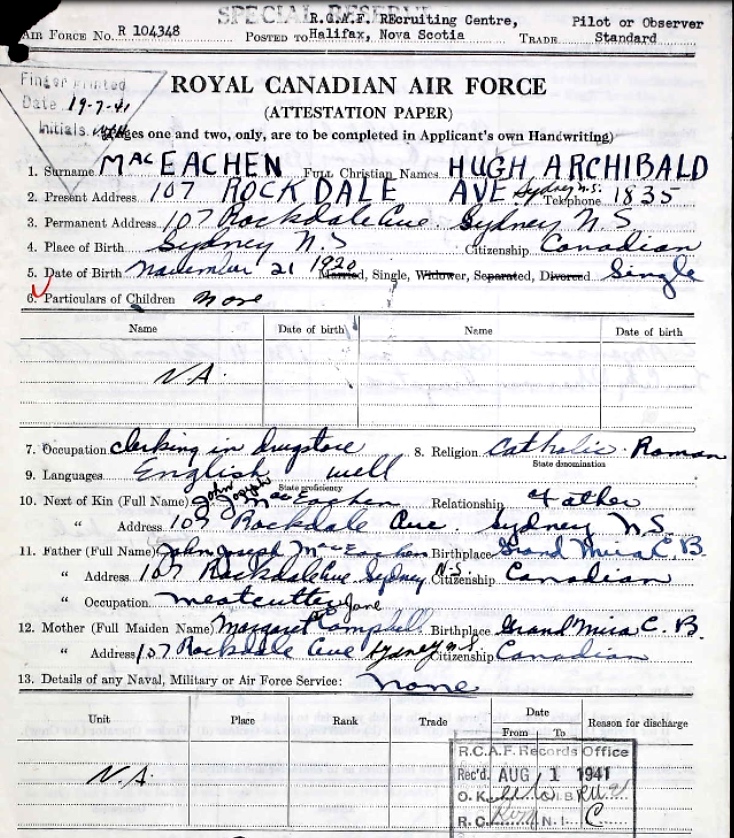 SPECIAL RESERVE
AIR FORCE NO. R 104348 POSTED TO R.C.A.F. REcruiting Centre, Halifax, Nova Scotia TRADE Pilot or Observer Standard
Finger Printed
Date 19-7-41
Initials
ROYAL CANADIAN AIR FORCE
(ATTESTATION PAPER)
(Pages one and two, only, are to be completed in Applicant's own Handwriting)
1. Surname MACEACHEN Full Christian Names HUGH ARCHIBALD
2. Present Address 107 ROCKDALE AVE Sydney N.S. Telephone 1835
3. Permanent Address 107 Rockdale Ave. Sydney N.S
4. Place of Birth Sydney N.S Citizenship Canadian
5. Date of Birth November 21 1920 Married, Single, Widower, Separated, Divorced Single
6. Particulars of Children None
Name Date of birth Name Date of birth
N.A.
7. Occupation clerking in drugstore 8. Religion Catholic - Roman
State denomination
9. Languages English well
State proficiency
10. Next of Kin (Full Name) John Joseph MacEachen Relationship Father
" Address 107 Rockdale Ave. Sydney N.S.
11. Father (Full Name) John Joseph MacEachen Birthplace Grand Mira C.B.
" Address 107 Rockdale Ave Sydney N.S. Citizenship Canadian
" Occupation meatcutter
12. Mother (Full Maiden Name) Margaret Jane Campbell Birthplace Grand Mira C.B.
" Address 107 Rockdale Ave Sydney N.S Citizenship Canadian
13. Details of any Naval, Military or Air Force Service: none
Unit Place Rank Trade Date From To Reason for discharge
N.A.
R.C.A.F. Records Office
Rec'd. AUG 1 1941
O.K. I.B
R.C. N.I. C.